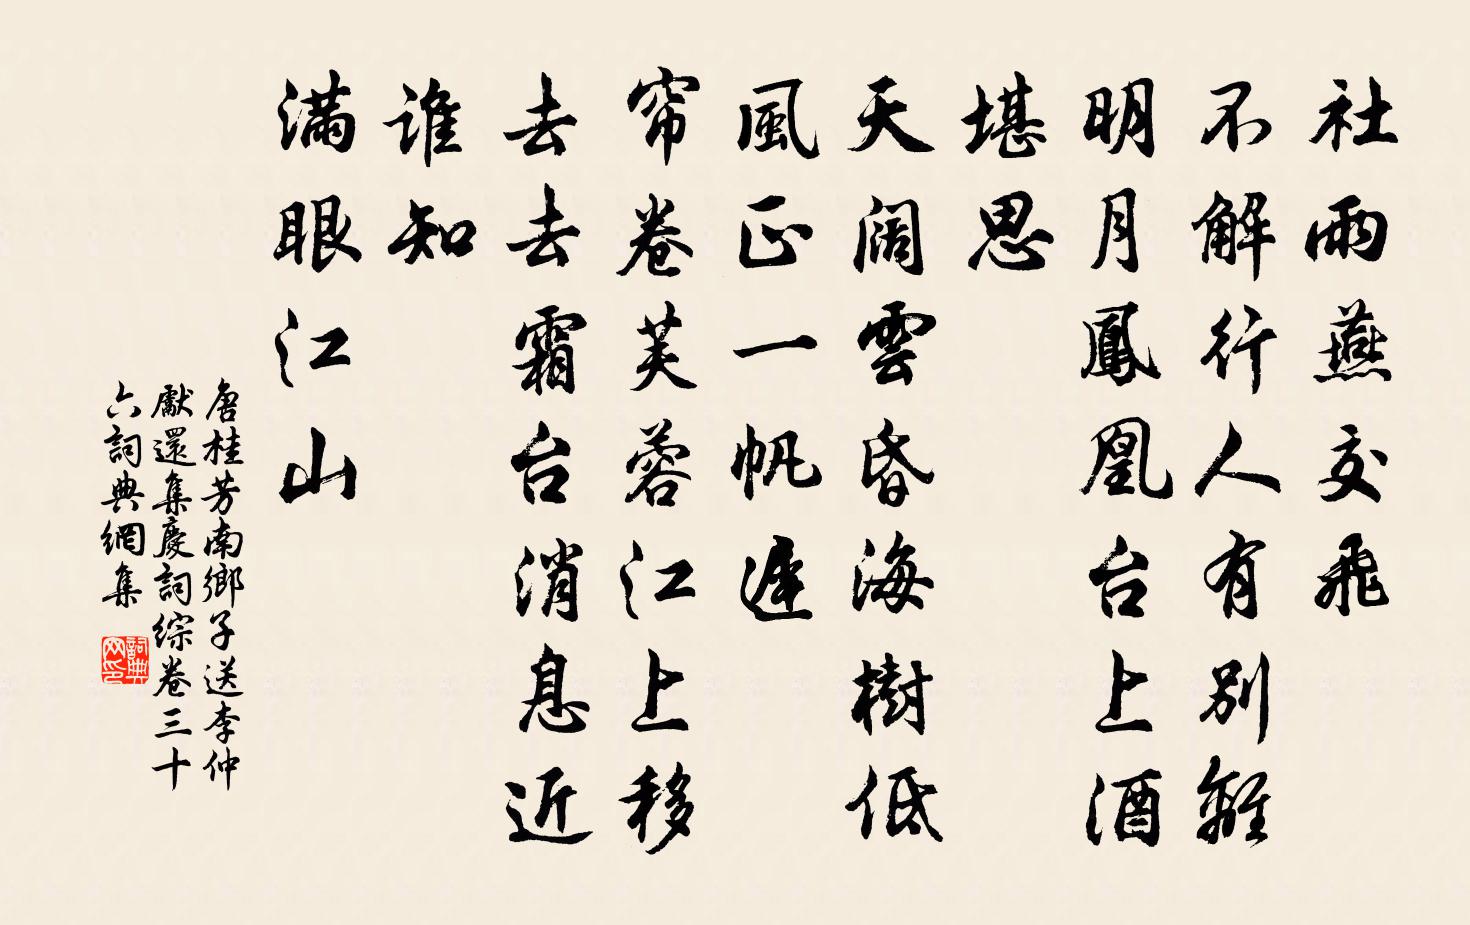 社雨燕交飛
不解行人有別離
明月鳳凰台上酒
堪思
天阔雲昏海樹低
風正一帆遲
帘卷芙蓉江上移
去去霜台消息近
谁知
满眼江山
唐桂芳南鄉子送李仲
獻還集慶詞綜卷三十
六詞典網集
詞典
网印